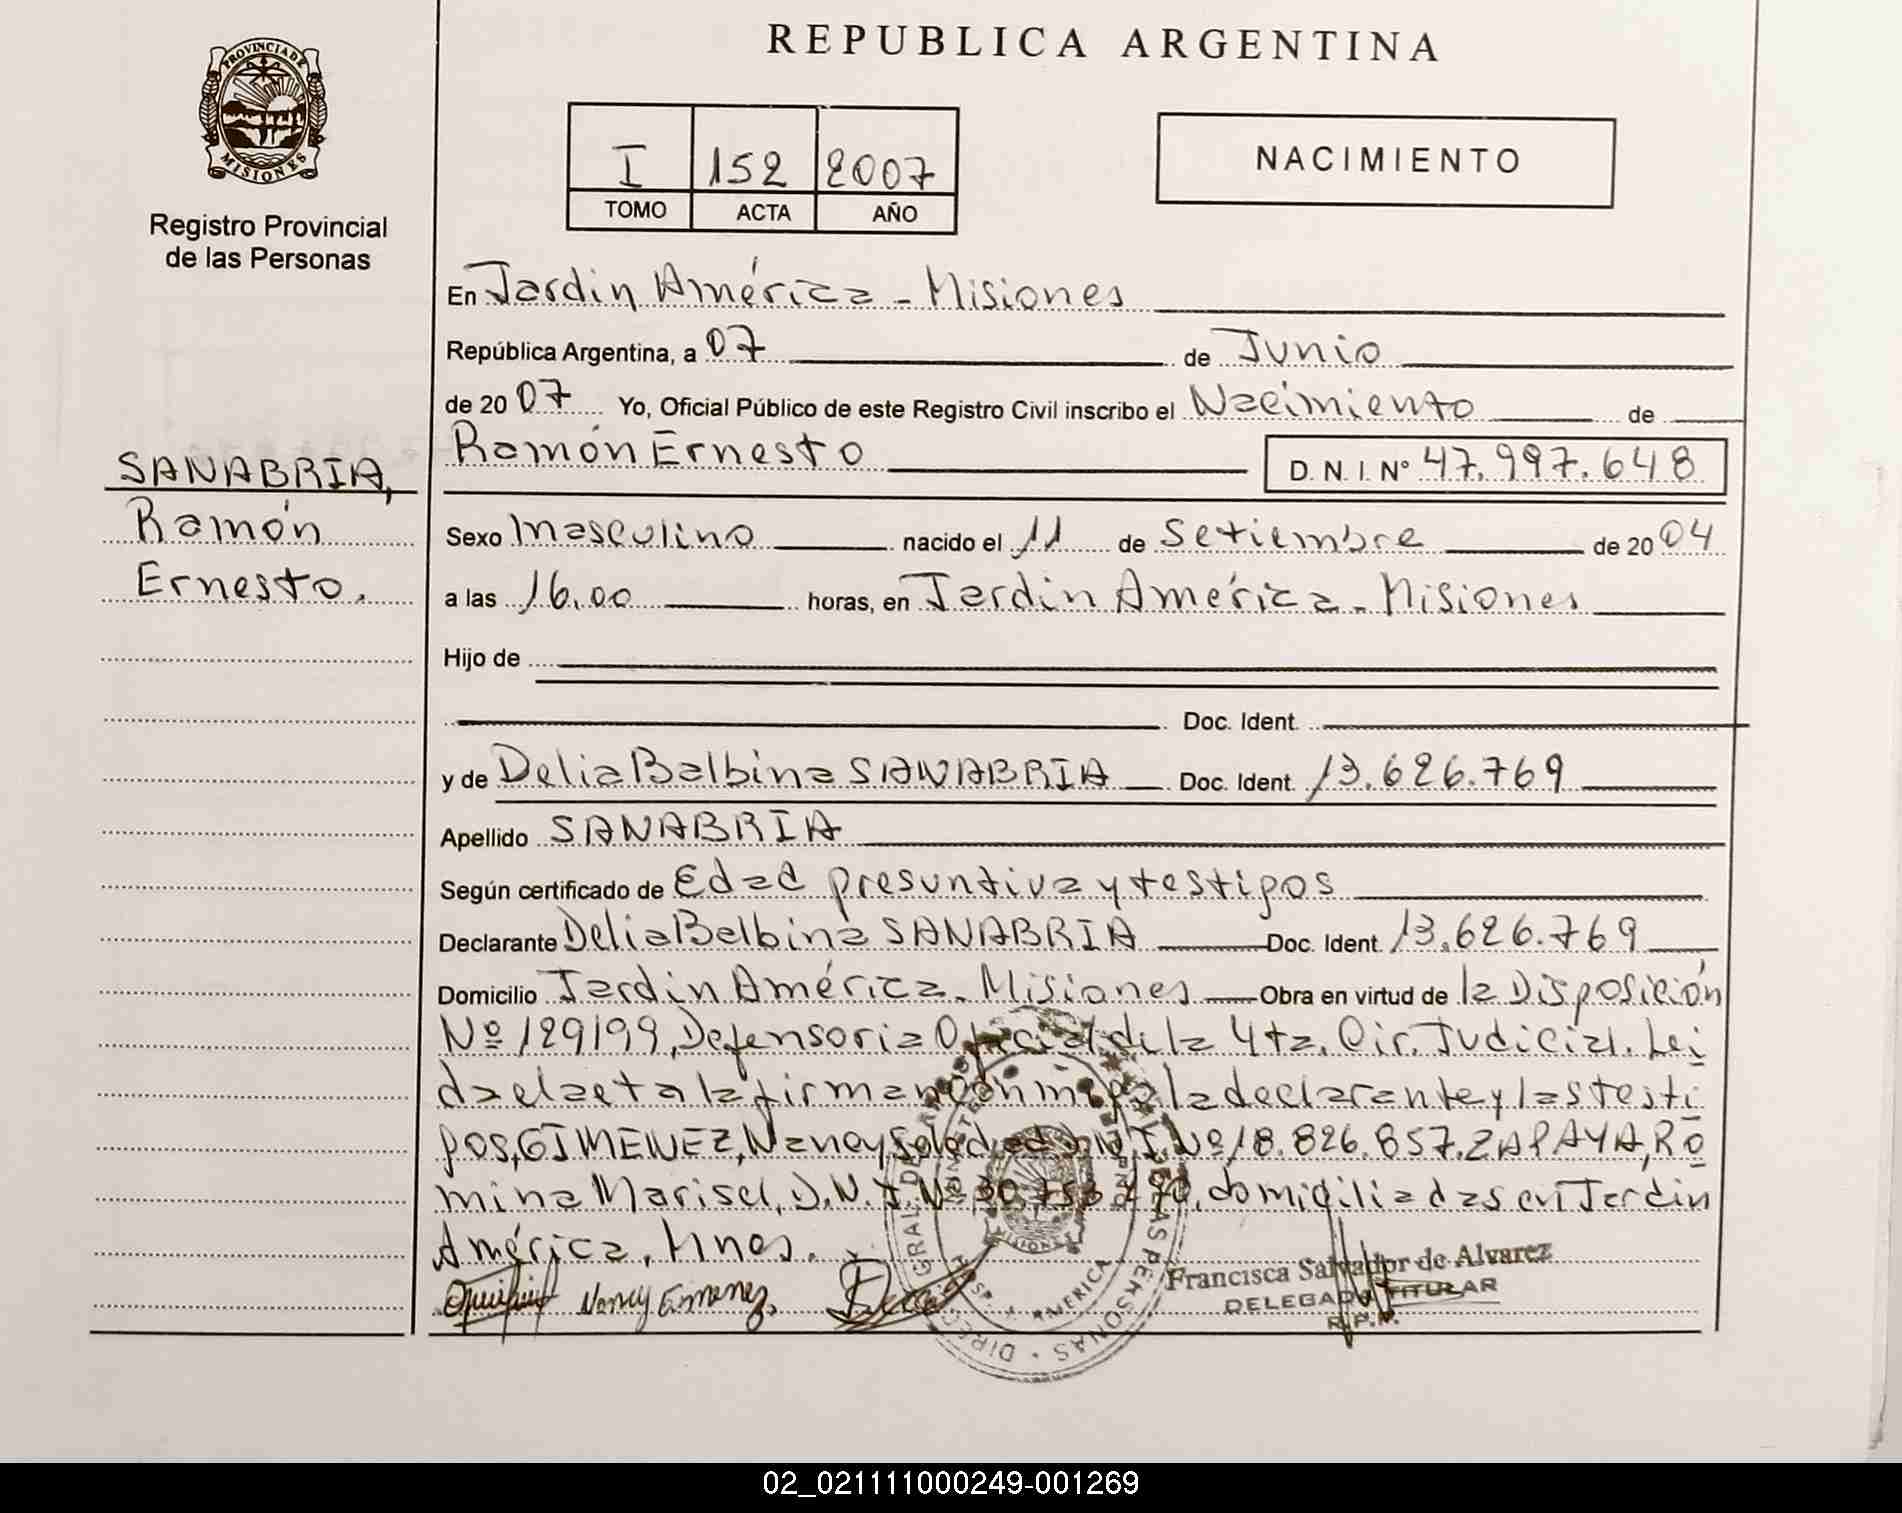 REPUBLICA ARGENTINA
PROVINCIA DE
MISIONES
Registro Provincial
de las Personas
I 152 2007
TOMO ACTA AÑO
NACIMIENTO
En Jardín América - Misiones
República Argentina, a 07 de Junio
de 2007 Yo, Oficial Público de este Registro Civil inscribo el Nacimiento de
Ramón Ernesto D. N. I. Nº 47.997.648
SANABRIA,
Ramón
Ernesto.
Sexo Masculino nacido el 11 de Setiembre de 2004
a las 16.00 horas, en Jardín América - Misiones
Hijo de
Doc. Ident.
y de Delia Balbina SANABRIA Doc. Ident. 13.626.769
Apellido SANABRIA
Según certificado de Edad presuntiva y testigos
Declarante Delia Balbina SANABRIA Doc. Ident. 13.626.769
Domicilio Jardín América - Misiones Obra en virtud de la Disposición
Nº 129/99, Defensoria Oficial de la 4ta. Cir. Judicial. Lei
da el acta la firman con migo la declarante y las testi
gos, GIMENEZ, Nancy Soledad D.N.I. Nº 18.826.857. ZAPAYA, Ro
mina Marisel, D.N.I. Nº domiciliadas en Jardín
América, Mnes.
Nancy Gimenez
Francisca Salvador de Alvarez
DELEGADA TITULAR
R.P.P.
MISIONES
AMERICA
02_021111000249-001269